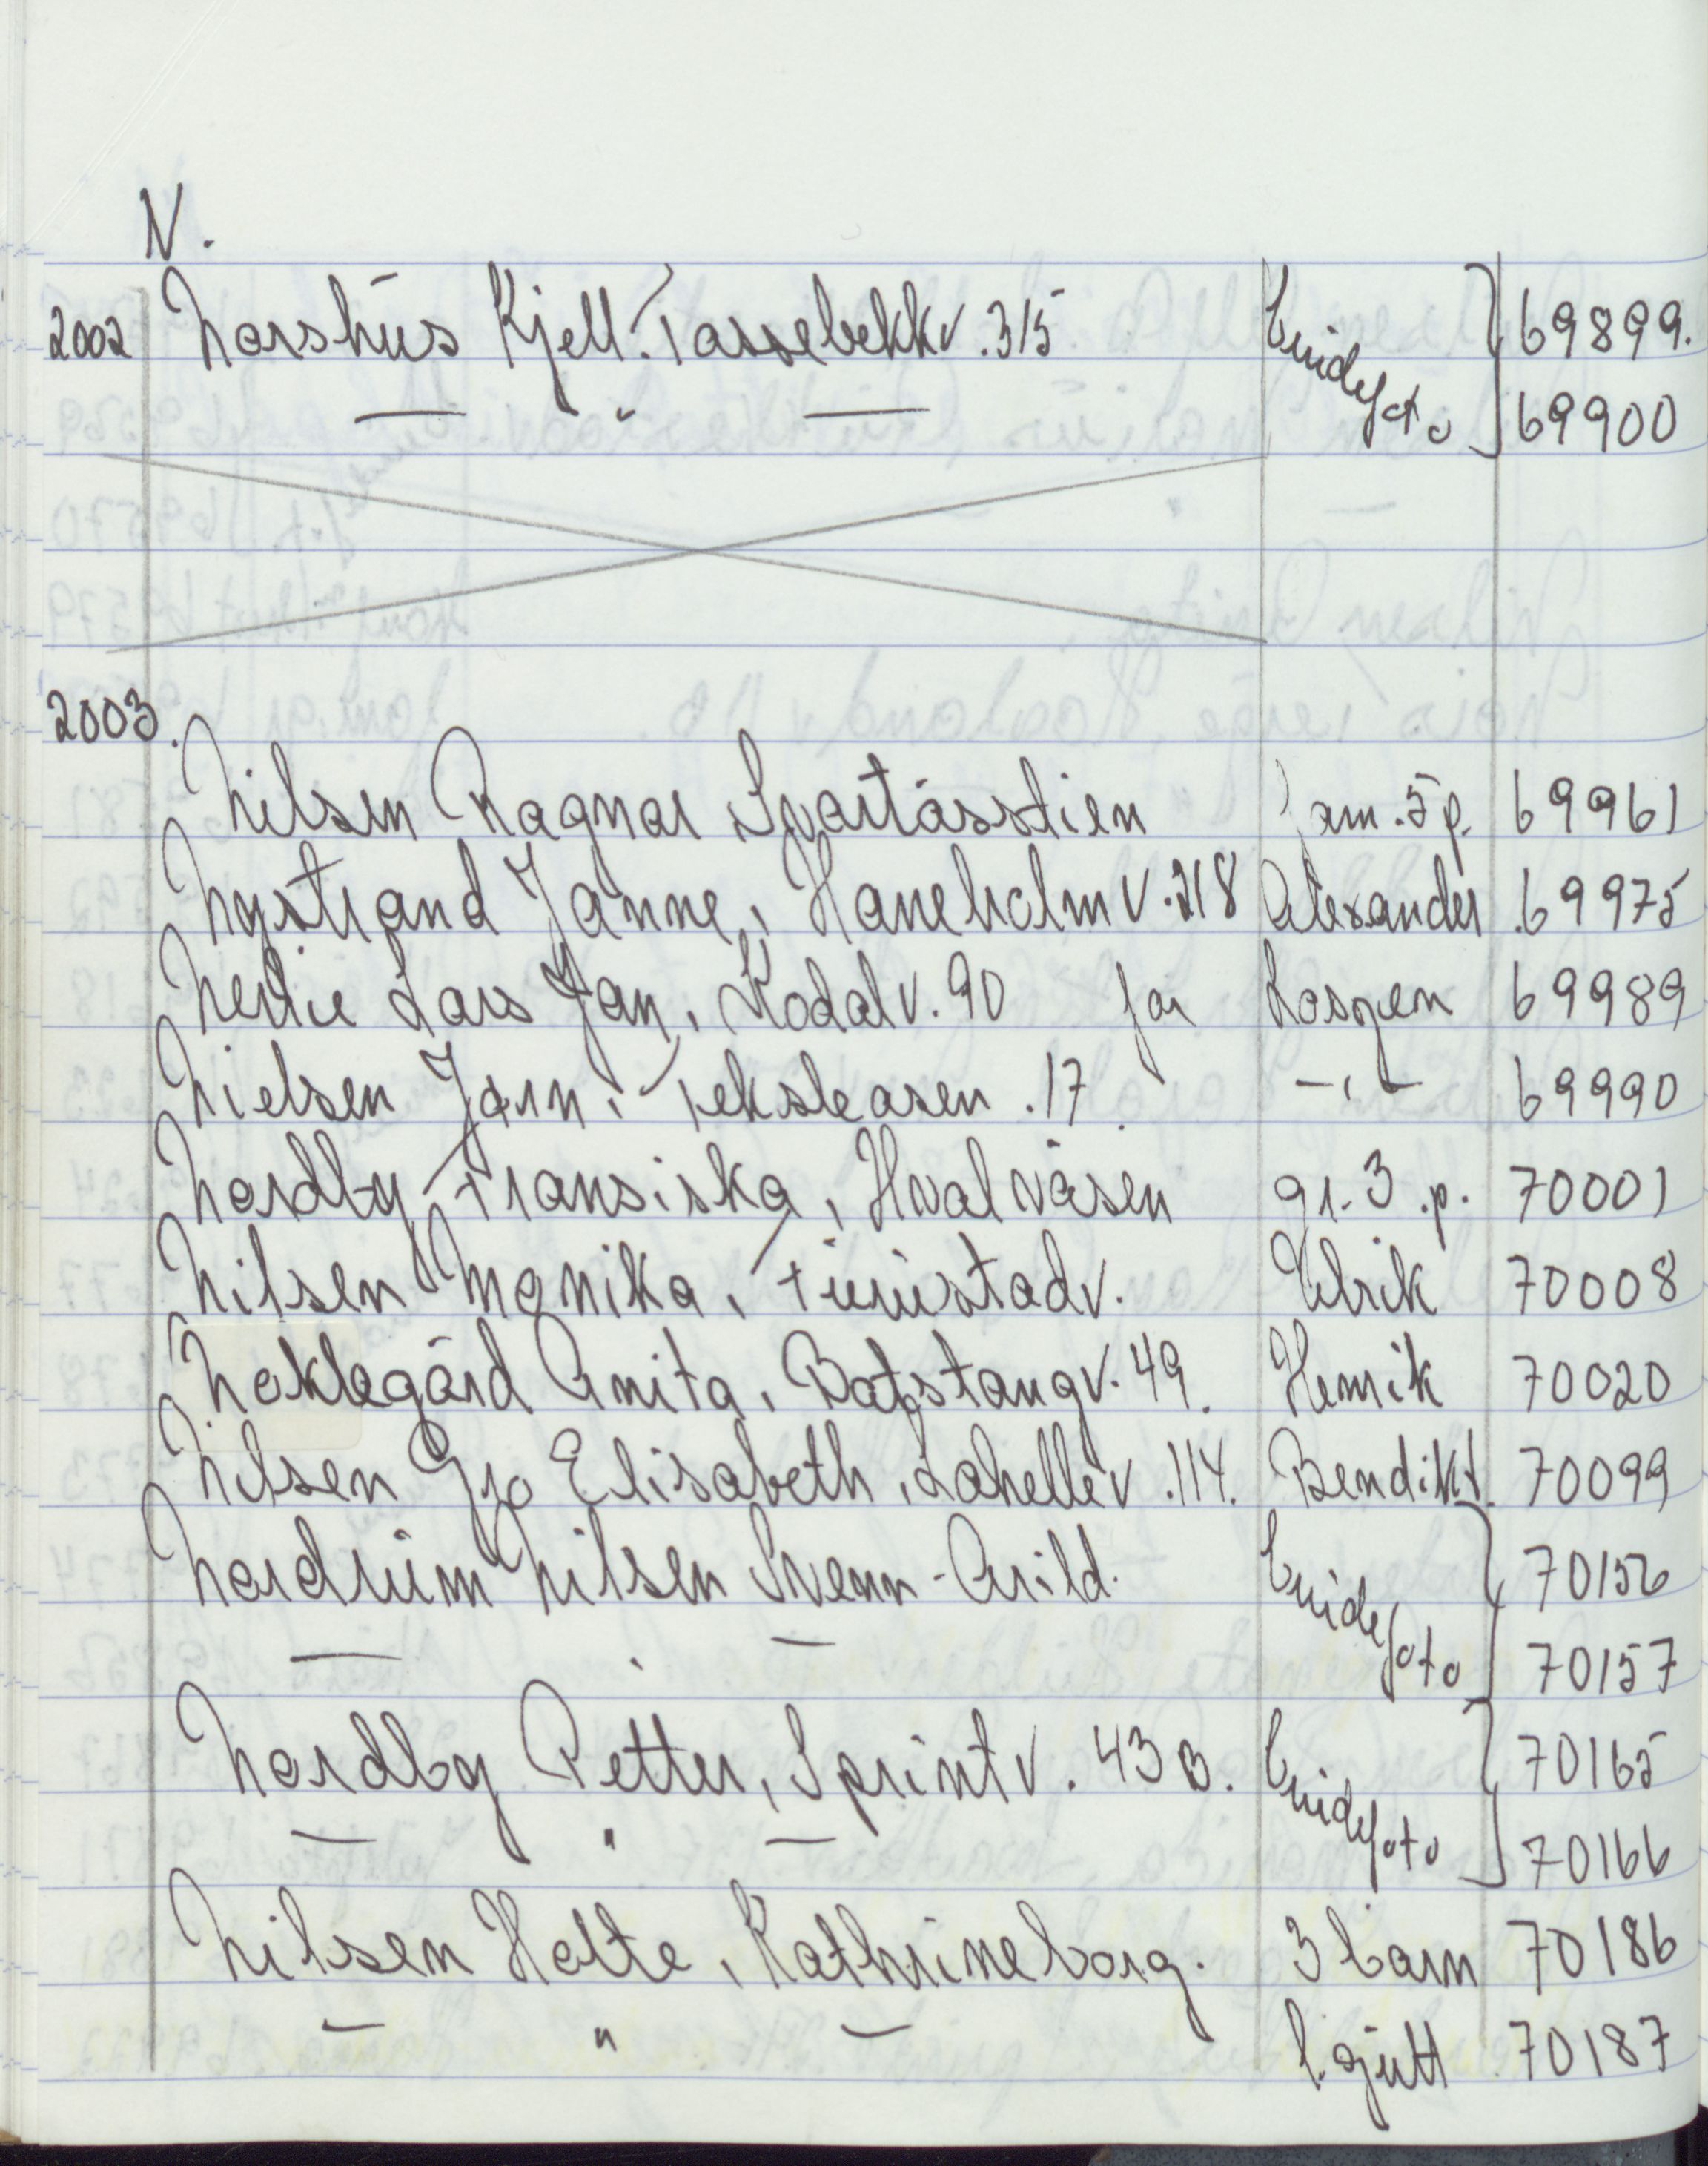 N.
2002 Norshus Kjell. Tassebekkv. 315 Brudefoto 69899.
— " — 69900
2003.
Nilsen Ragnar Svartåsstien fam. 5 p. 69961
Nystrand Janne, Haneholmv. 218 Alexander 69975
Nerlie Lars Jan, Kodalv. 90 for Laszen 69989
Nielsen Jørn, Feksleåsen. 17 — " — 69990
Nordby Fransiska, Hvalvåsen gr. 3 p. 70001
Nilsen Monika, Furustadv. Ulrik 70008
Noklegård Anita, Båtstangv. 49. Henrik 70020
Nilsen Gro Elisabeth, Lahellev. 114. Bendikt. 70099
Nordrum Nilsen Svenn-Arild. Brudefoto 70156
— " — 70157
Nordby Petter, Sprintv. 43 B. Brudefoto 70165
— " — 70166
Nilsen Hotte, Kathrineborg. 3 barn 70186
— " — l. gutt 70187